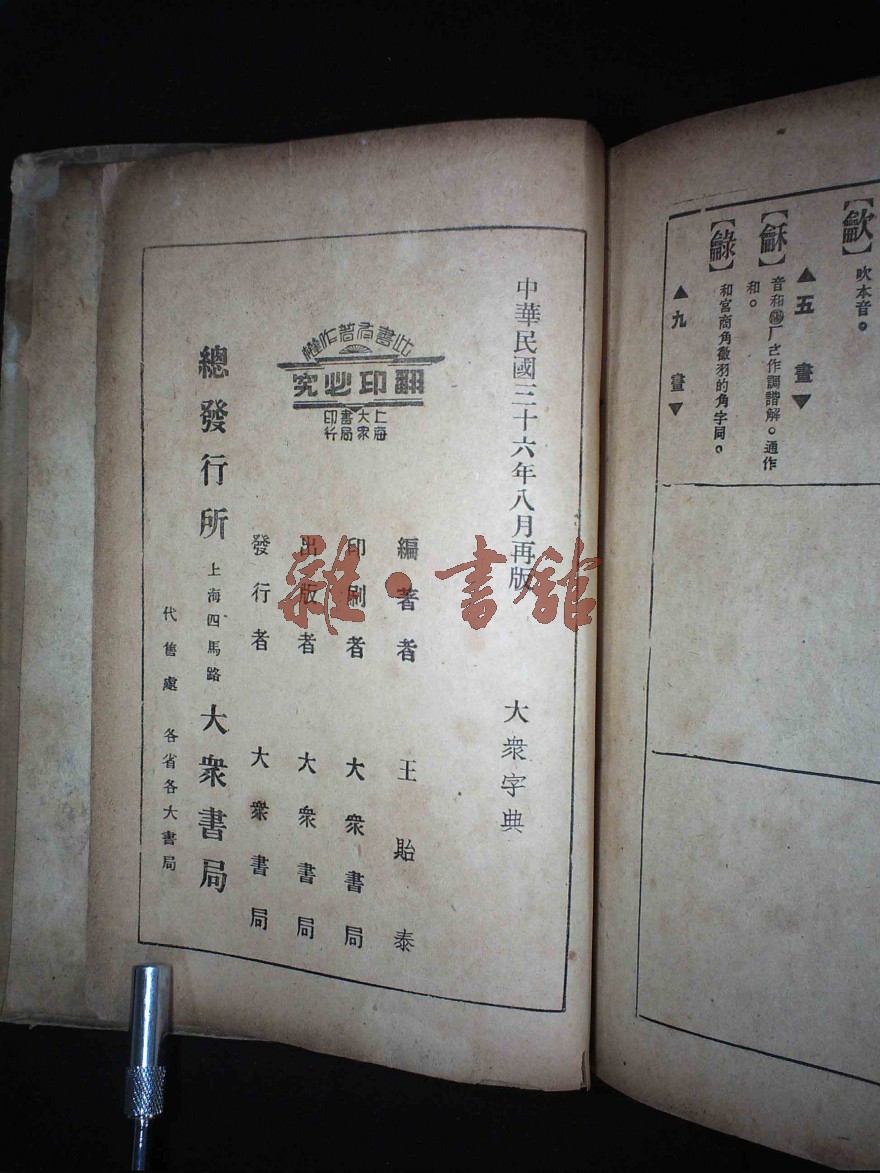 【龡】吹本音。
▲五 畫▼
【龢】音和
厂さ作調諧解。通作
和。
【龣】和宮商角徵羽的角字同。
▲九 畫▼
中華民國三十六年八月再版
大衆字典
此書有著作權
翻印必究
上海大衆書局印行
編著者 王貽泰
印刷者 大衆書局
出版者 大衆書局
發行者 大衆書局
總發行所 上海四馬路 大衆書局
代售處 各省各大書局
雜·書館